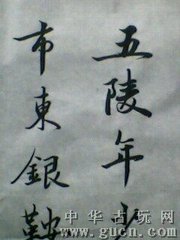 五陵年少
市東銀鞍
中华古玩网
www.gucn.com